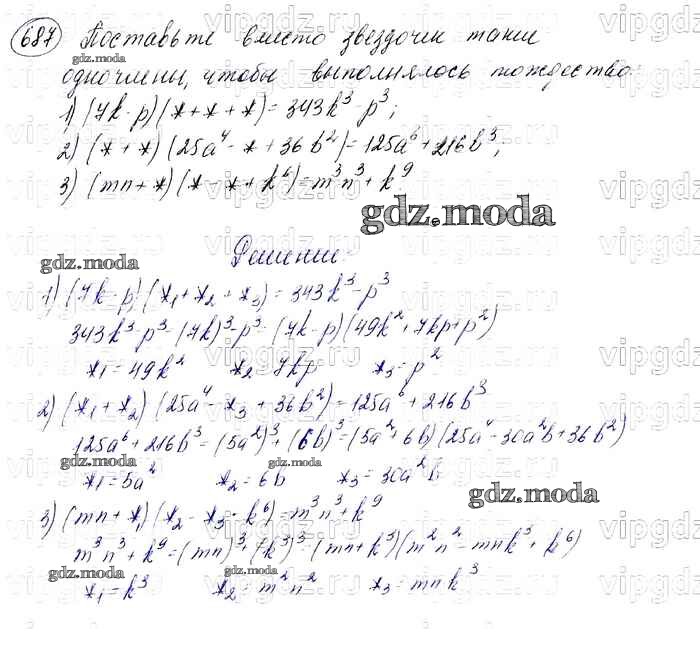 687 Поставьте вместо звездочек такие
одночлены, чтобы выполнялось тождество:
1) (7k - p)(* + * + *) = 343k³ - p³;
2) (* + *)(25a⁴ - * + 36b²) = 125a⁶ + 216b³;
3) (mn + *)(* - * + k⁶) = m³n³ + k⁹
gdz.moda
Решение
gdz.moda
1) (7k - p)(*₁ + *₂ + *₃) = 343k³ - p³
343k³ - p³ = (7k)³ - p³ = (7k - p)(49k² + 7kp + p²)
*₁ = 49k² *₂ = 7kp *₃ = p²
2) (*₁ + *₂)(25a⁴ - *₃ + 36b²) = 125a⁶ + 216b³
125a⁶ + 216b³ = (5a²)³ + (6b)³ = (5a² + 6b)(25a⁴ - 30a²b + 36b²)
gdz.moda gdz.moda
*₁ = 5a² *₂ = 6b *₃ = 30a²b
gdz.moda
3) (mn + *₁)(*₂ - *₃ + k⁶) = m³n³ + k⁹
m³n³ + k⁹ = (mn)³ + (k³)³ = (mn + k³)(m²n² - mnk³ + k⁶)
gdz.moda gdz.moda
*₁ = k³ *₂ = m²n² *₃ = mnk³